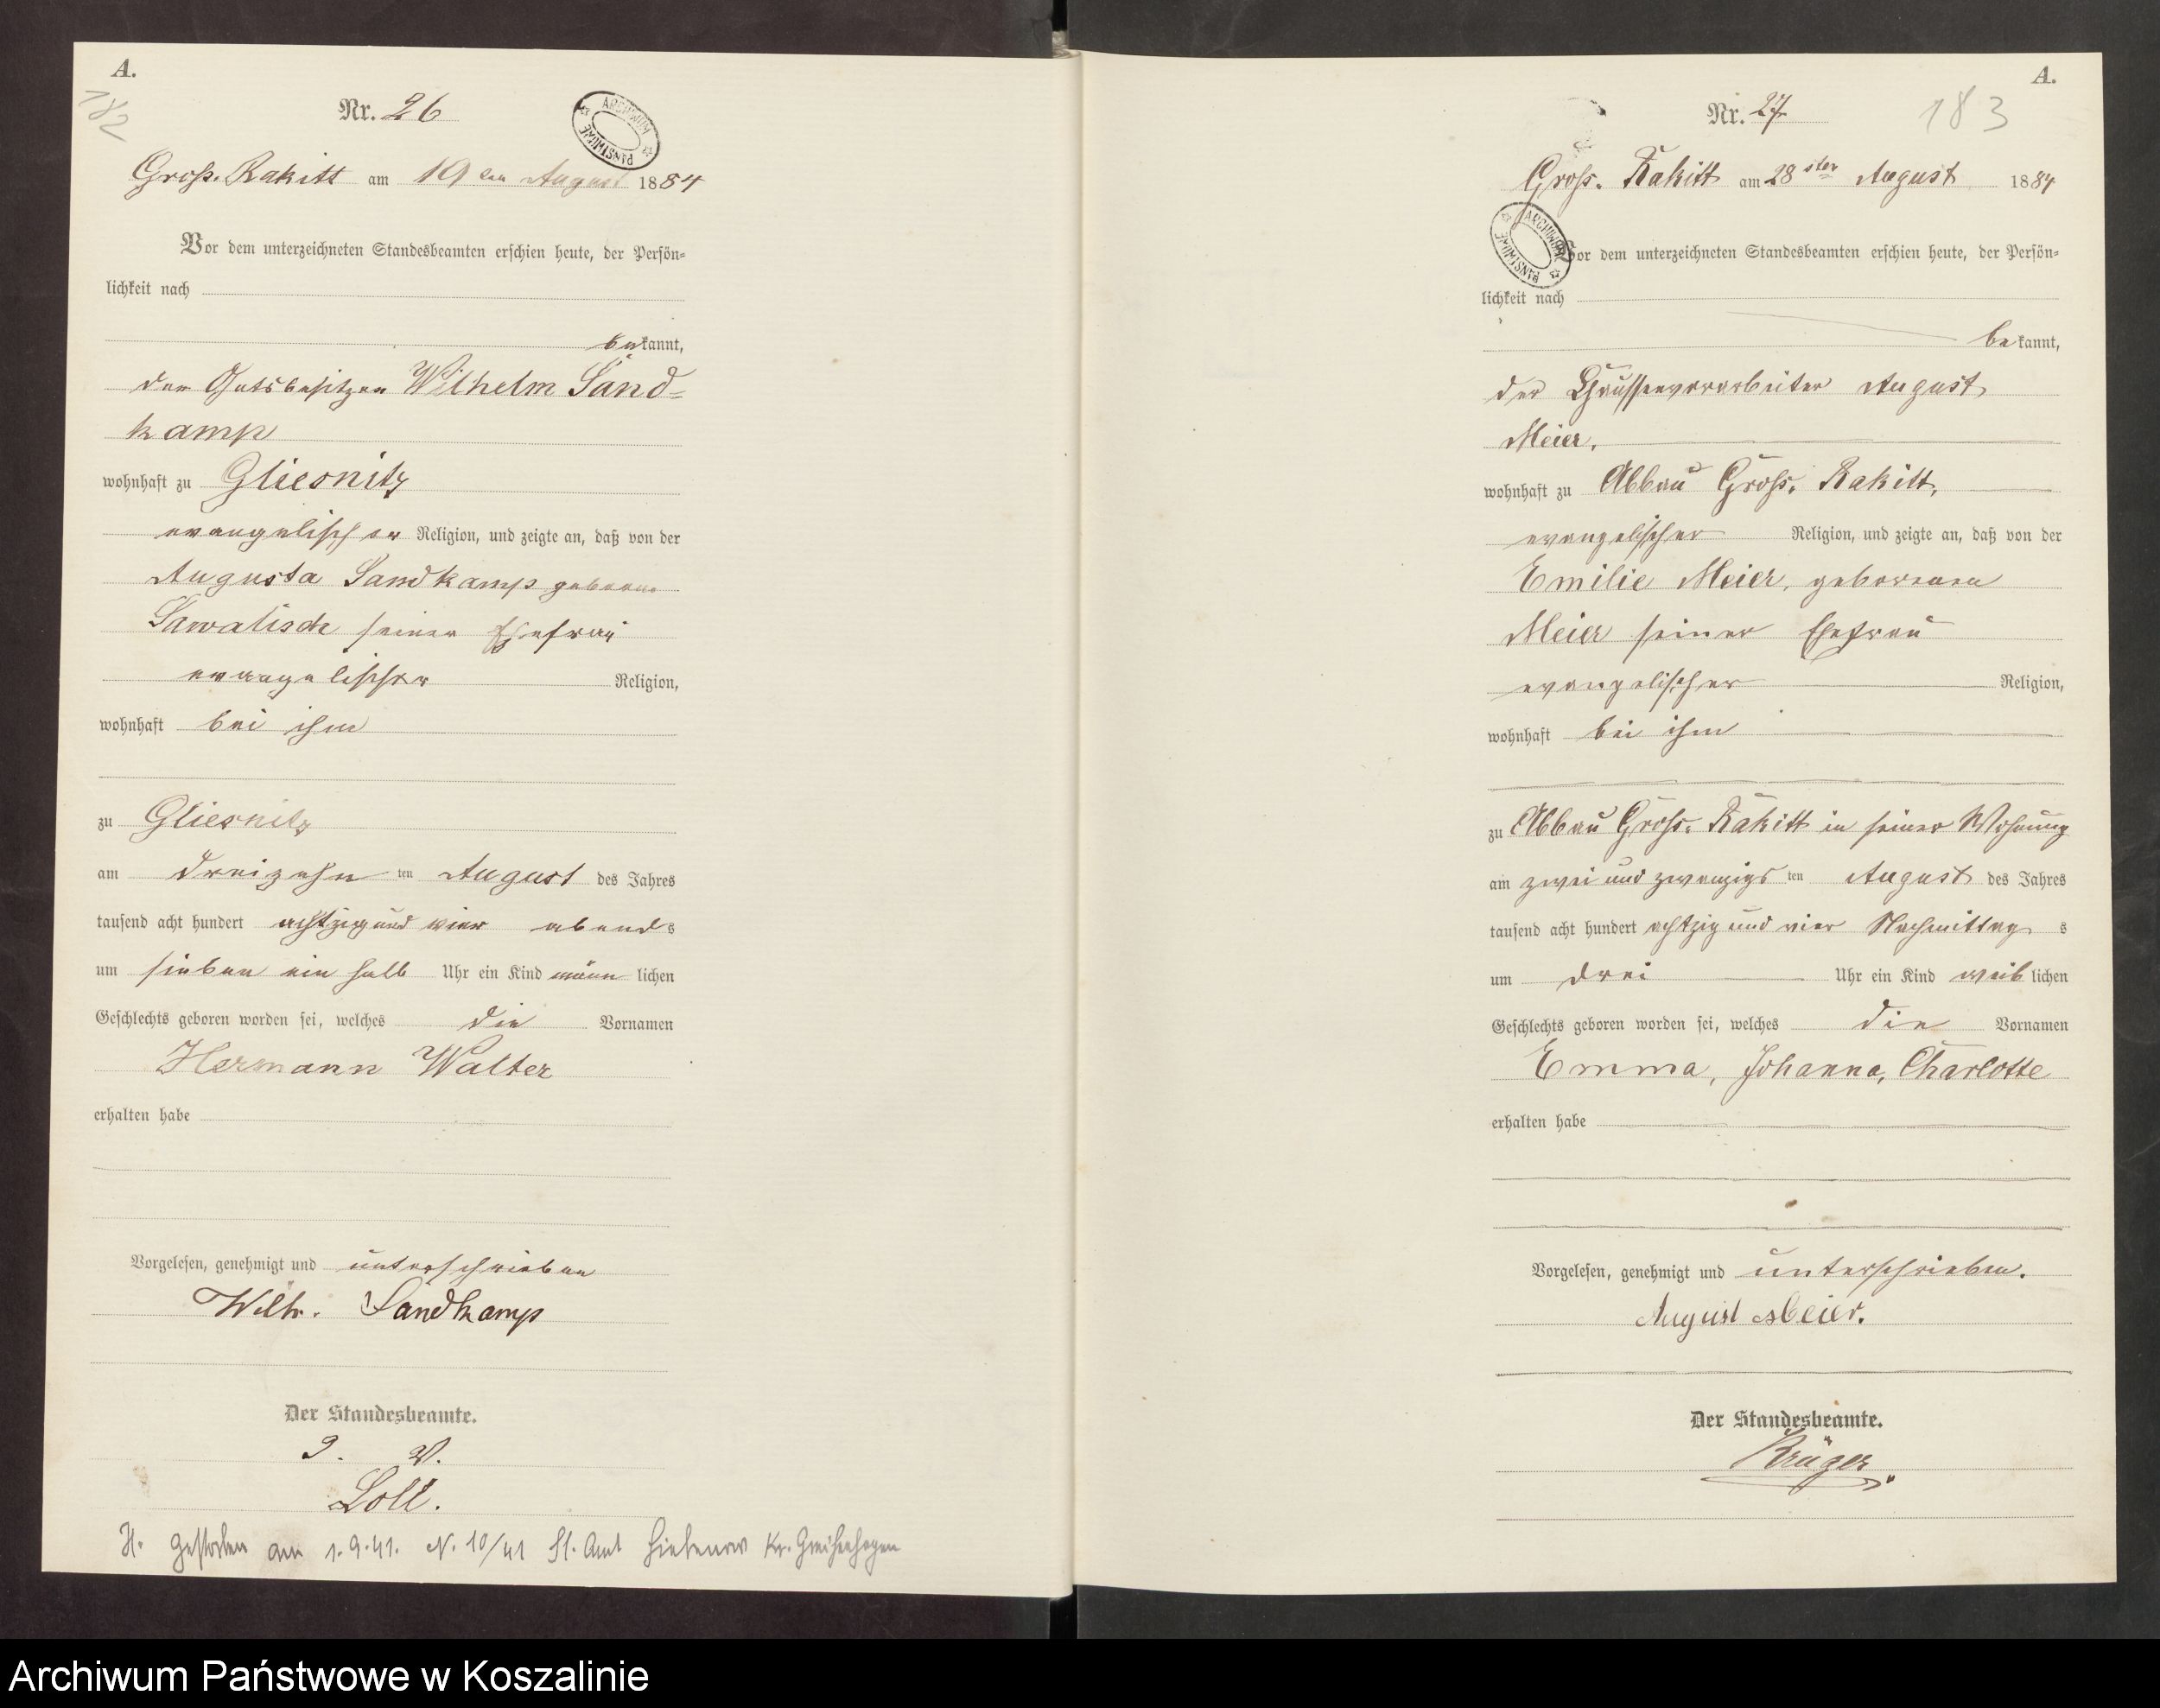 A.
182
Nr. 26
ARCHIWUM PAŃSTWOWE
Groß. Rakitt am 19 ten August 1884
Vor dem unterzeichneten Standesbeamten erschien heute, der Persön-
lichkeit nach
bekannt,
der Gutsbesitzer Wilhelm Sand-
kamp
wohnhaft zu Gliesnitz
evangelischer Religion, und zeigte an, daß von der
Augusta Sandkamp geborne
Sawalisch seiner Ehefrau
evangelischer Religion,
wohnhaft bei ihm
zu Gliesnitz
am dreizehn ten August des Jahres
tausend acht hundert achtzig und vier abends
um sieben ein halb Uhr ein Kind männlichen
Geschlechts geboren worden sei, welches die Vornamen
Hermann Walter
erhalten habe
Vorgelesen, genehmigt und unterschrieben
Wilh. Sandkamp
Der Standesbeamte.
I. V.
Loll.
H. gestorben am 1.9.41. N. 10/41 St. Amt Kr. Greifenhagen
A.
183
Nr. 27
Groß. Rakitt am 28 sten August 1884
ARCHIWUM PAŃSTWOWE
Vor dem unterzeichneten Standesbeamten erschien heute, der Persön-
lichkeit nach
bekannt,
der Chausseevorarbeiter August
Meier,
wohnhaft zu Abbau Groß. Rakitt,
evangelischer Religion, und zeigte an, daß von der
Emilie Meier, geborenen
Meier seiner Ehefrau
evangelischer Religion,
wohnhaft bei ihm
zu Abbau Groß. Rakitt in seiner Wohnung
am zwei und zwanzigs ten August des Jahres
tausend acht hundert achtzig und vier Nachmittag s
um drei Uhr ein Kind weiblichen
Geschlechts geboren worden sei, welches die Vornamen
Emma, Johanna, Charlotte
erhalten habe
Vorgelesen, genehmigt und unterschrieben.
August Meier.
Der Standesbeamte.
Krüger
Archiwum Państwowe w Koszalinie